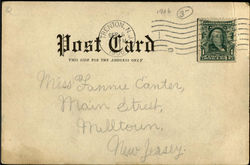 1906
3-
TRENTON, N.J.
Post Card
THIS SIDE FOR THE ADDRESS ONLY
Miss Fannie Canter,
Main Street,
Milltown,
New Jersey.